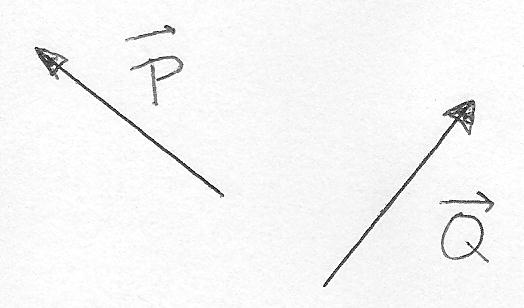 P⃗
Q⃗